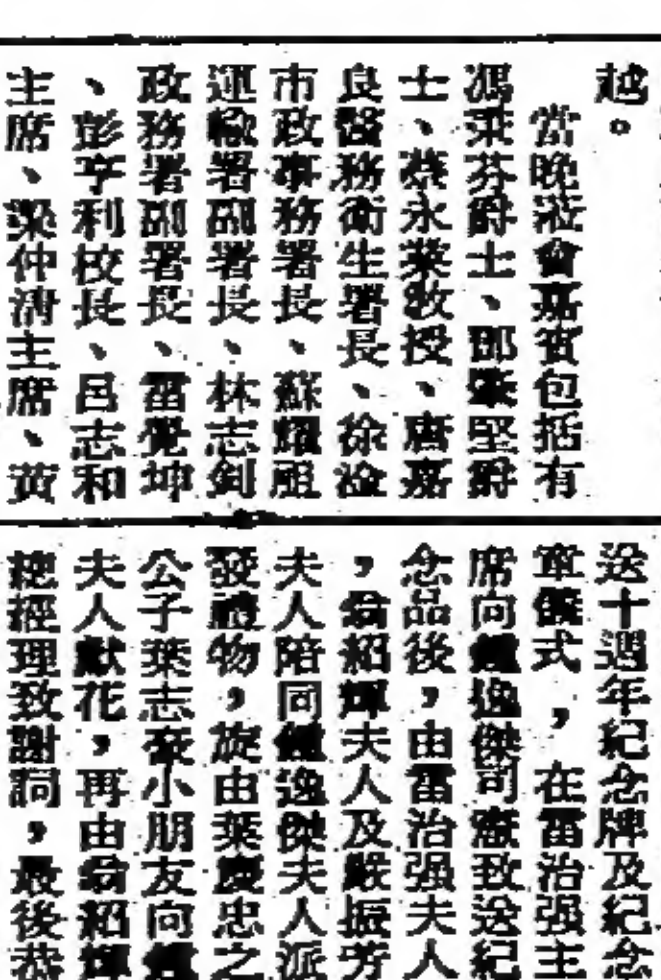 越。
當晚蒞會嘉賓包括有
馮秉芬爵士、鄧肇堅爵
士、蔡永業教授、唐嘉
良醫務衛生署長、徐淦
市政事務署長、蘇耀祖
運輸署副署長、林志釗
政務署副署長、雷覺坤
、彭亨利校長、呂志和
主席、梁仲清主席、黃
送十週年紀念牌及紀念
章儀式,在雷治强主
席向鍾逸傑司憲致送紀
念品後,由雷治强夫人
,翁紹輝夫人及嚴振芳
夫人陪同鍾逸傑夫人派
發禮物,旋由葉慶忠之
公子葉志豪小朋友向鍾
夫人獻花,再由翁紹輝
總經理致謝詞,最後恭